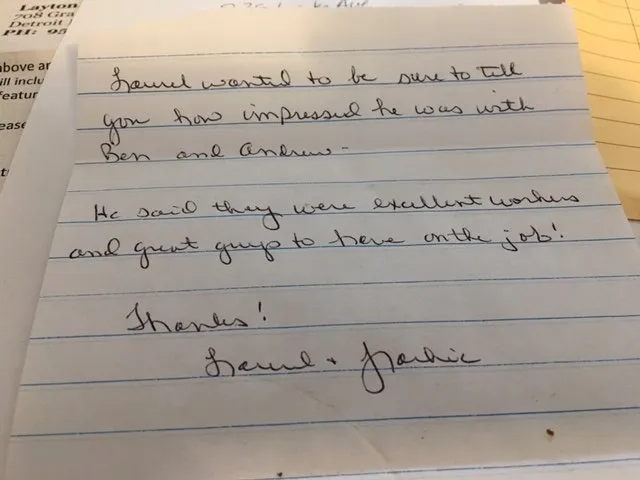 Layton
708 Gra
Detroit
PH: 95
above ar
ill inclu
featur
ease
Laurel wanted to be sure to tell
you how impressed he was with
Ben and Andrew-
He said they were excellent workers
and great guys to have on the job!
Thanks!
Laurel +